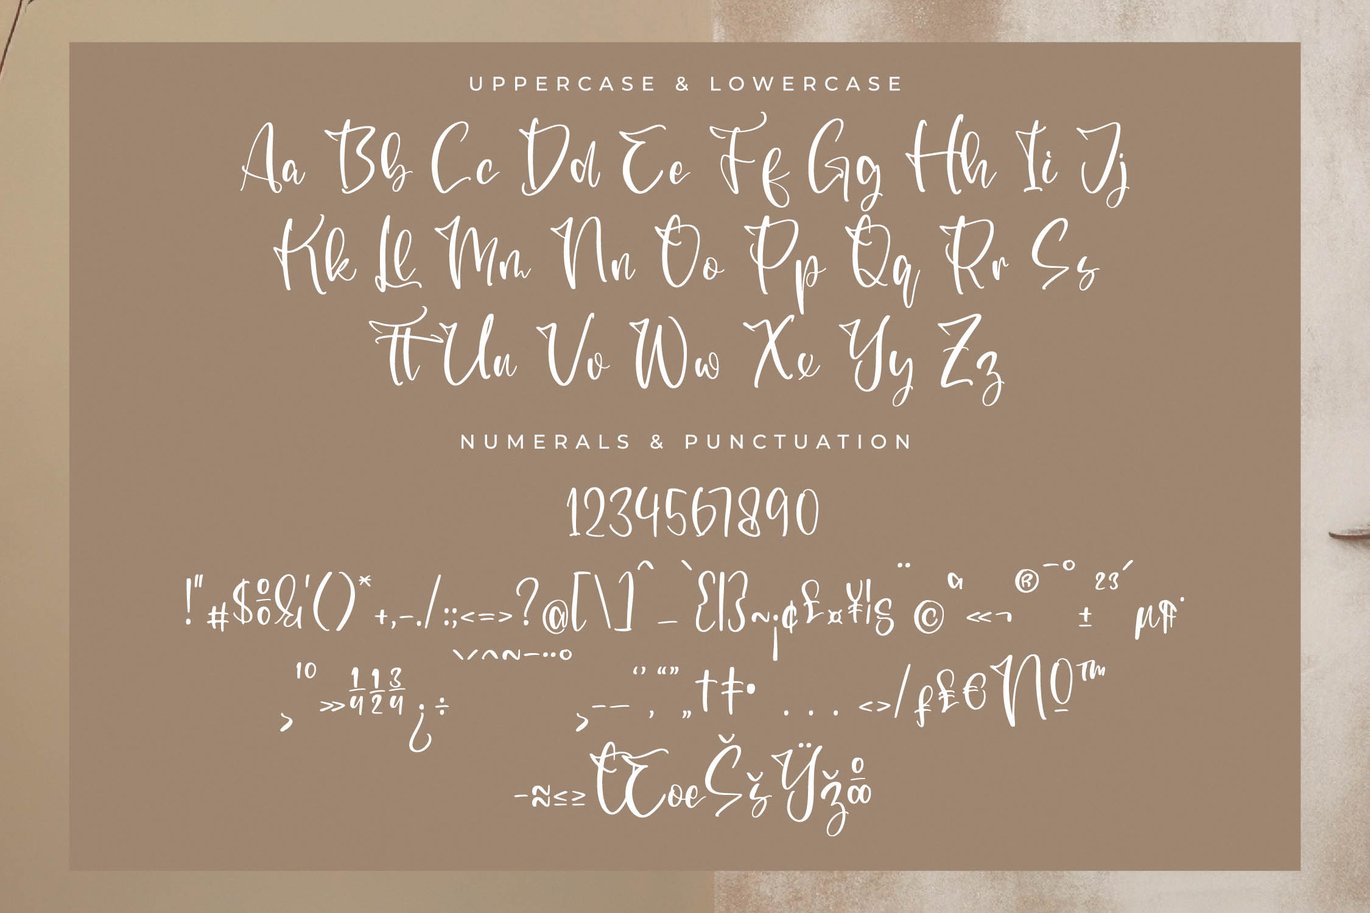 UPPERCASE & LOWERCASE
Aa Bb Cc Dd Ee Ff Gg Hh Ii Jj
Kk Ll Mm Nn Oo Pp Qq Rr Ss
Tt Uu Vv Ww Xx Yy Zz
NUMERALS & PUNCTUATION
1234567890
!"#$%&'()*+,-./:;<=>?@[\]^_`{|}~¡¢£¤¥¦§¨©ª«¬®¯°±²³´µ¶·
¸¹º»¼½¾¿ˋˊˆˇ˜¯˙¨˚÷¸–—‘’‚“”„†‡•...‹›⁄₣₤€№™
−≈≤≥ŒœŠšŸž‰